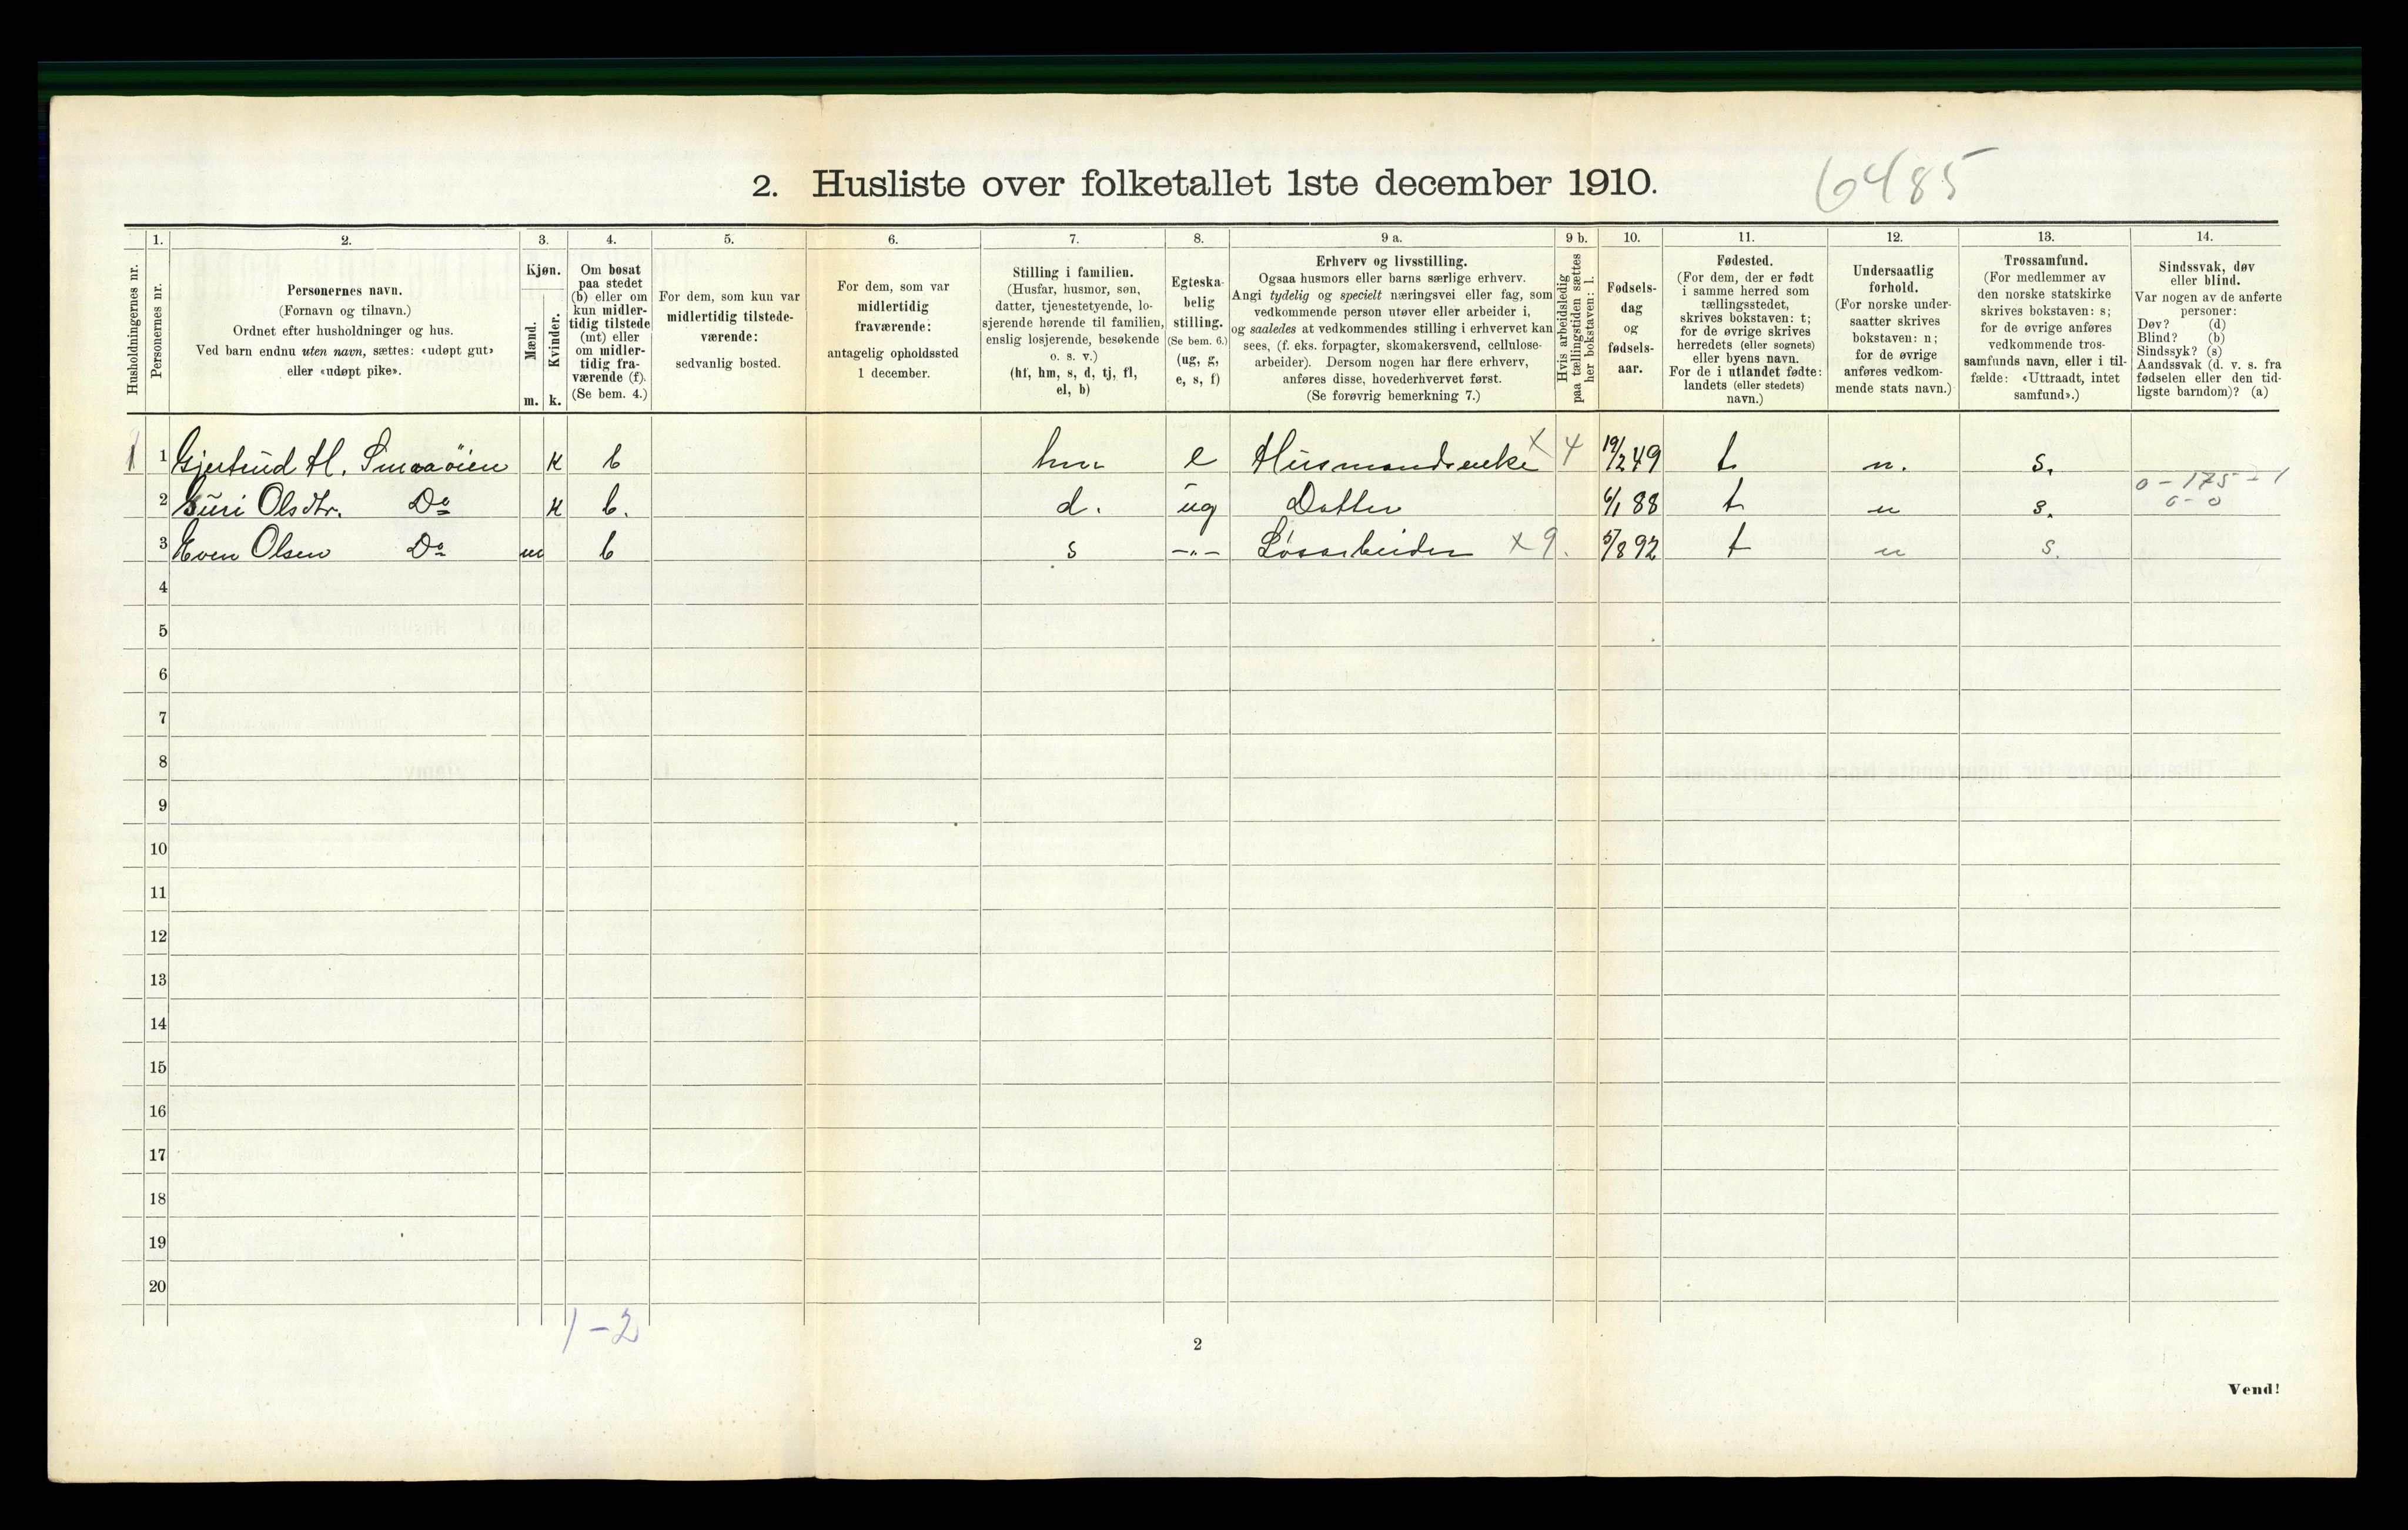 2. Husliste over folketallet 1ste december 1910.
6485
Husholdningernes nr.
1.
Personernes nr.
2.
Personernes navn.
(Fornavn og tilnavn.)
Ordnet efter husholdninger og hus.
Ved barn endnu uten navn, sættes: «udøpt gut»
eller «udøpt pike».
3.
Kjøn.
Mænd.
Kvinder.
m. k.
4.
Om bosat
paa stedet
(b) eller om
kun midler-
tidig tilstede
(mt) eller
om midler-
tidig fra-
værende (f).
(Se bem. 4.)
5.
For dem, som kun var
midlertidig tilstede-
værende:
sedvanlig bosted.
6.
For dem, som var
midlertidig
fraværende:
antagelig opholdssted
1 december.
7.
Stilling i familien.
(Husfar, husmor, søn,
datter, tjenestetyende, lo-
sjerende hørende til familien,
enslig losjerende, besøkende
o. s. v.)
(hf, hm, s, d, tj, fl,
el, b)
8.
Egteska-
belig
stilling.
(Se bem. 6.)
(ug, g,
e, s, f)
9 a.
Erhverv og livsstilling.
Ogsaa husmors eller barns særlige erhverv.
Angi tydelig og specielt næringsvei eller fag, som
vedkommende person utøver eller arbeider i,
og saaledes at vedkommendes stilling i erhvervet kan
sees, (f. eks. forpagter, skomakersvend, cellulose-
arbeider). Dersom nogen har flere erhverv,
anføres disse, hovederhvervet først.
(Se forøvrig bemerkning 7.)
9 b.
Hvis arbeidsledig
paa tællingstiden sættes
her bokstaven: l.
10.
Fødsels-
dag
og
fødsels-
aar.
11.
Fødested.
(For dem, der er født
i samme herred som
tællingsstedet,
skrives bokstaven: t;
for de øvrige skrives
herredets (eller sognets)
eller byens navn.
For de i utlandet fødte:
landets (eller stedets)
navn.)
12.
Undersaatlig
forhold.
(For norske under-
saatter skrives
bokstaven: n;
for de øvrige
anføres vedkom-
mende stats navn.)
13.
Trossamfund.
(For medlemmer av
den norske statskirke
skrives bokstaven: s;
for de øvrige anføres
vedkommende tros-
samfunds navn, eller i til-
fælde: «Uttraadt, intet
samfund».)
14.
Sindssvak, døv
eller blind.
Var nogen av de anførte
personer:
Døv? (d)
Blind? (b)
Sindssyk? (s)
Aandssvak (d. v. s. fra
fødselen eller den tid-
ligste barndom)? (a)
1 1 Gjertrud H. Smaaöien k b hm e Husmandsenke x 4 19/2 49 t n. s.
0 - 175 - 1
2 Guri Olsdtr. Do k b. d. ug Datter 6/1 88 t n s. 0 - 0
3 Even Olsen Do m b s -"- Løsarbeider x 9. 5/8 92 t n s.
4
5
6
7
8
9
10
11
12
13
14
15
16
17
18
19
20
1 - 2
2
Vend!